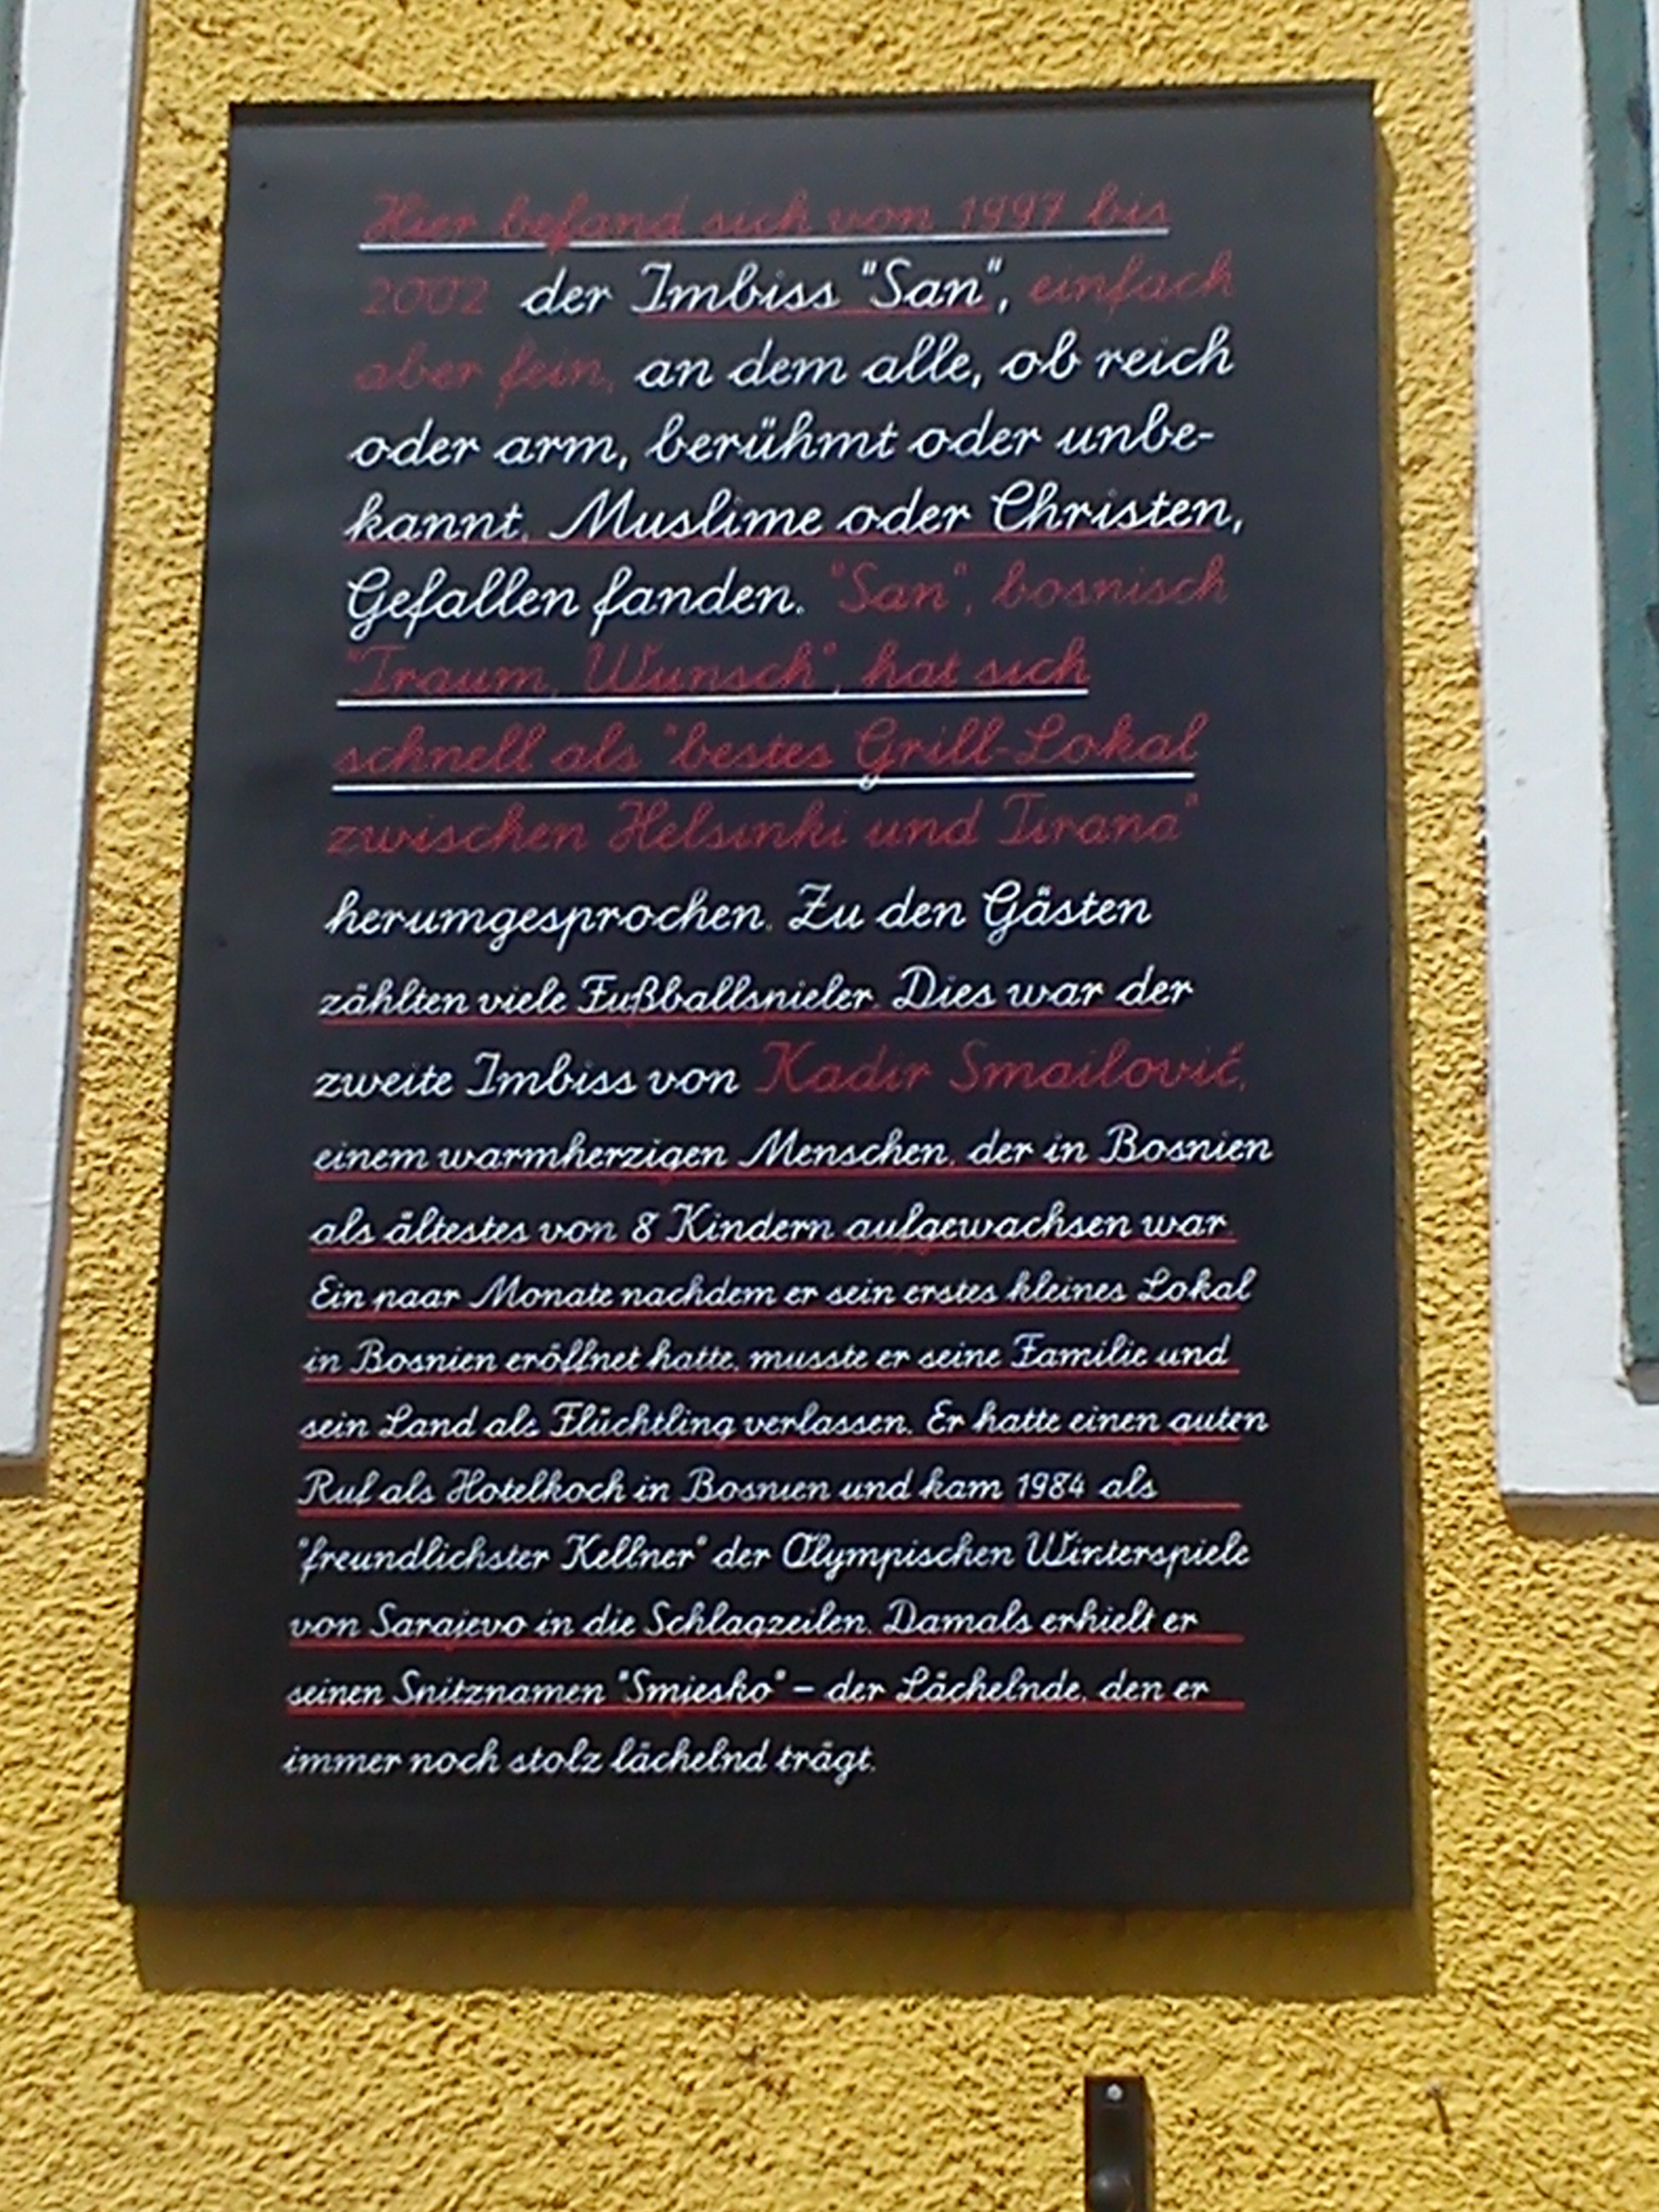 Hier befand sich von 1997 bis
2002 der Imbiss "San", einfach
aber fein, an dem alle, ob reich
oder arm, berühmt oder unbe-
kannt, Muslime oder Christen,
Gefallen fanden. "San", bosnisch
"Traum, Wunsch", hat sich
schnell als "bestes Grill-Lokal
zwischen Helsinki und Tirana"
herumgesprochen. Zu den Gästen
zählten viele Fußballspieler. Dies war der
zweite Imbiss von Kadir Smailović,
einem warmherzigen Menschen, der in Bosnien
als ältestes von 8 Kindern aufgewachsen war.
Ein paar Monate nachdem er sein erstes kleines Lokal
in Bosnien eröffnet hatte, musste er seine Familie und
sein Land als Flüchtling verlassen. Er hatte einen guten
Ruf als Hotelkoch in Bosnien und kam 1984 als
"freundlichster Kellner" der Olympischen Winterspiele
von Sarajevo in die Schlagzeilen. Damals erhielt er
seinen Spitznamen "Smiesko" – der Lächelnde, den er
immer noch stolz lächelnd trägt.